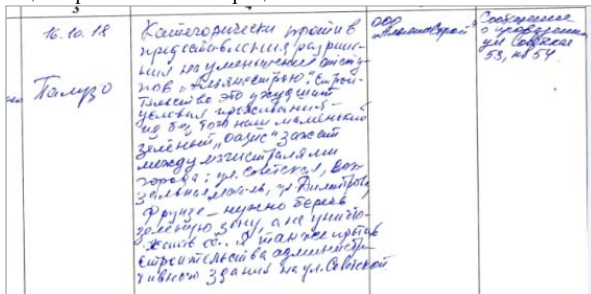 3
16.10.18
Палузо
Категорически против
предоставления разреше-
ния на уменьшение отсту-
пов „Альянсстрою". Строи-
тельство это ухудшит
условия проживания –
и без того наш маленький
зелёный „оазис" зажат
между магистралями
города: ул. Советская, Вок-
зальная маг-ль, ул. Димитрова,
Фрунзе – нужно беречь
зелёную зону, а не уничто-
жать её. Я также против
строительства администра-
тивного здания на ул. Советской
ООО
„АльянсСтрой"
Сообщение
о проведении
ул Советская
53, кв 54.